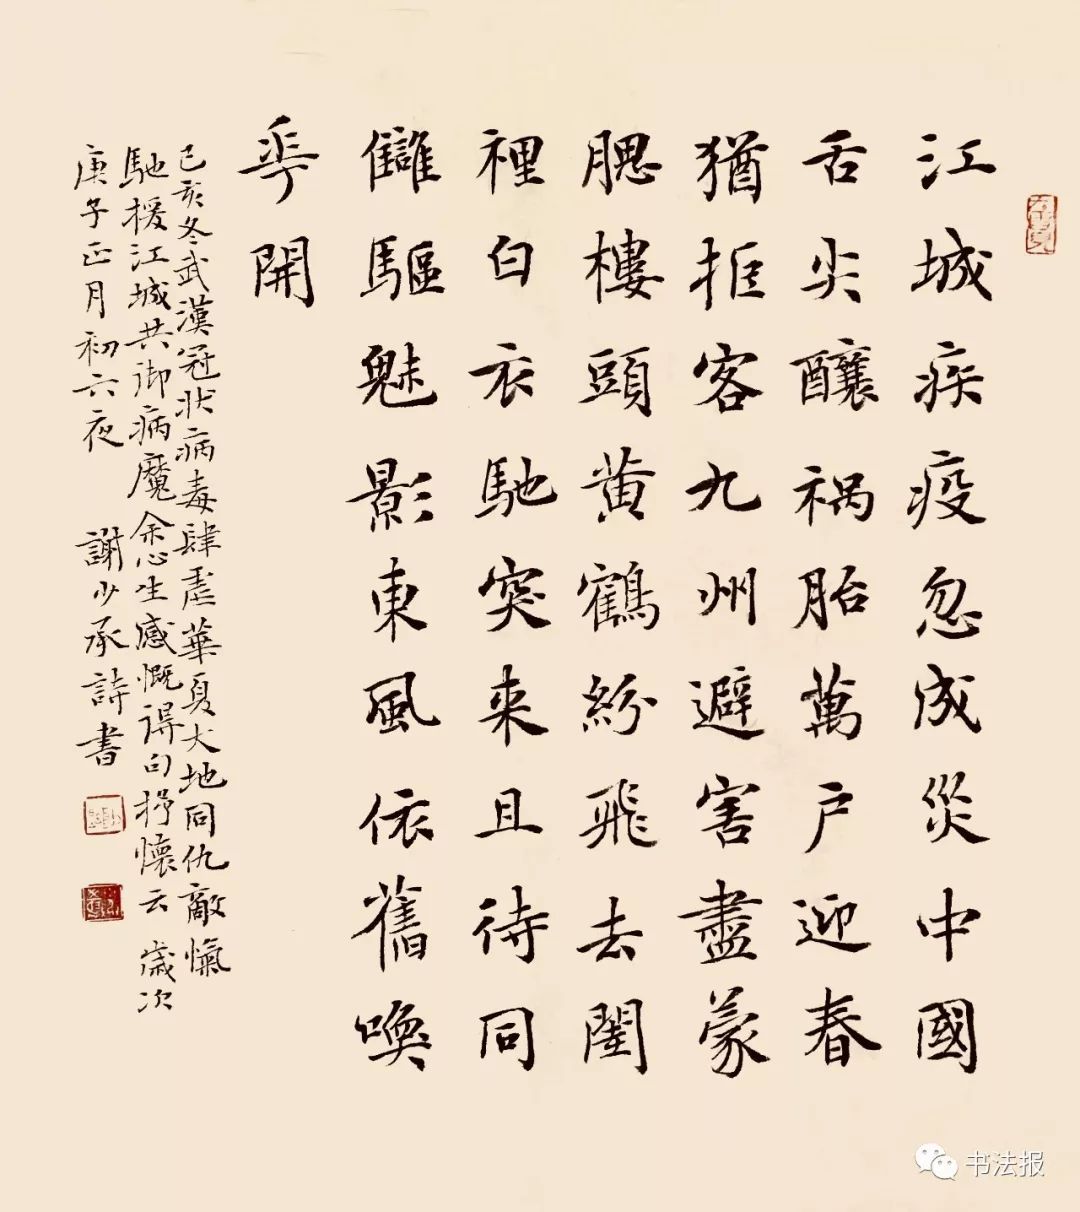 江城疾疫忽成災中國
舌尖釀禍胎萬戶迎春
猶拒客九州避害盡蒙
腮樓頭黃鶴紛飛去闈
裡白衣馳突来且待同
讎驅魅影東風依舊喚
華開
己亥冬武漢冠狀病毒肆虐華夏大地同仇敵愾
馳援江城共御病魔余心生感慨得句抒懷云歲次
庚子正月初六夜 謝少承詩書
书法报